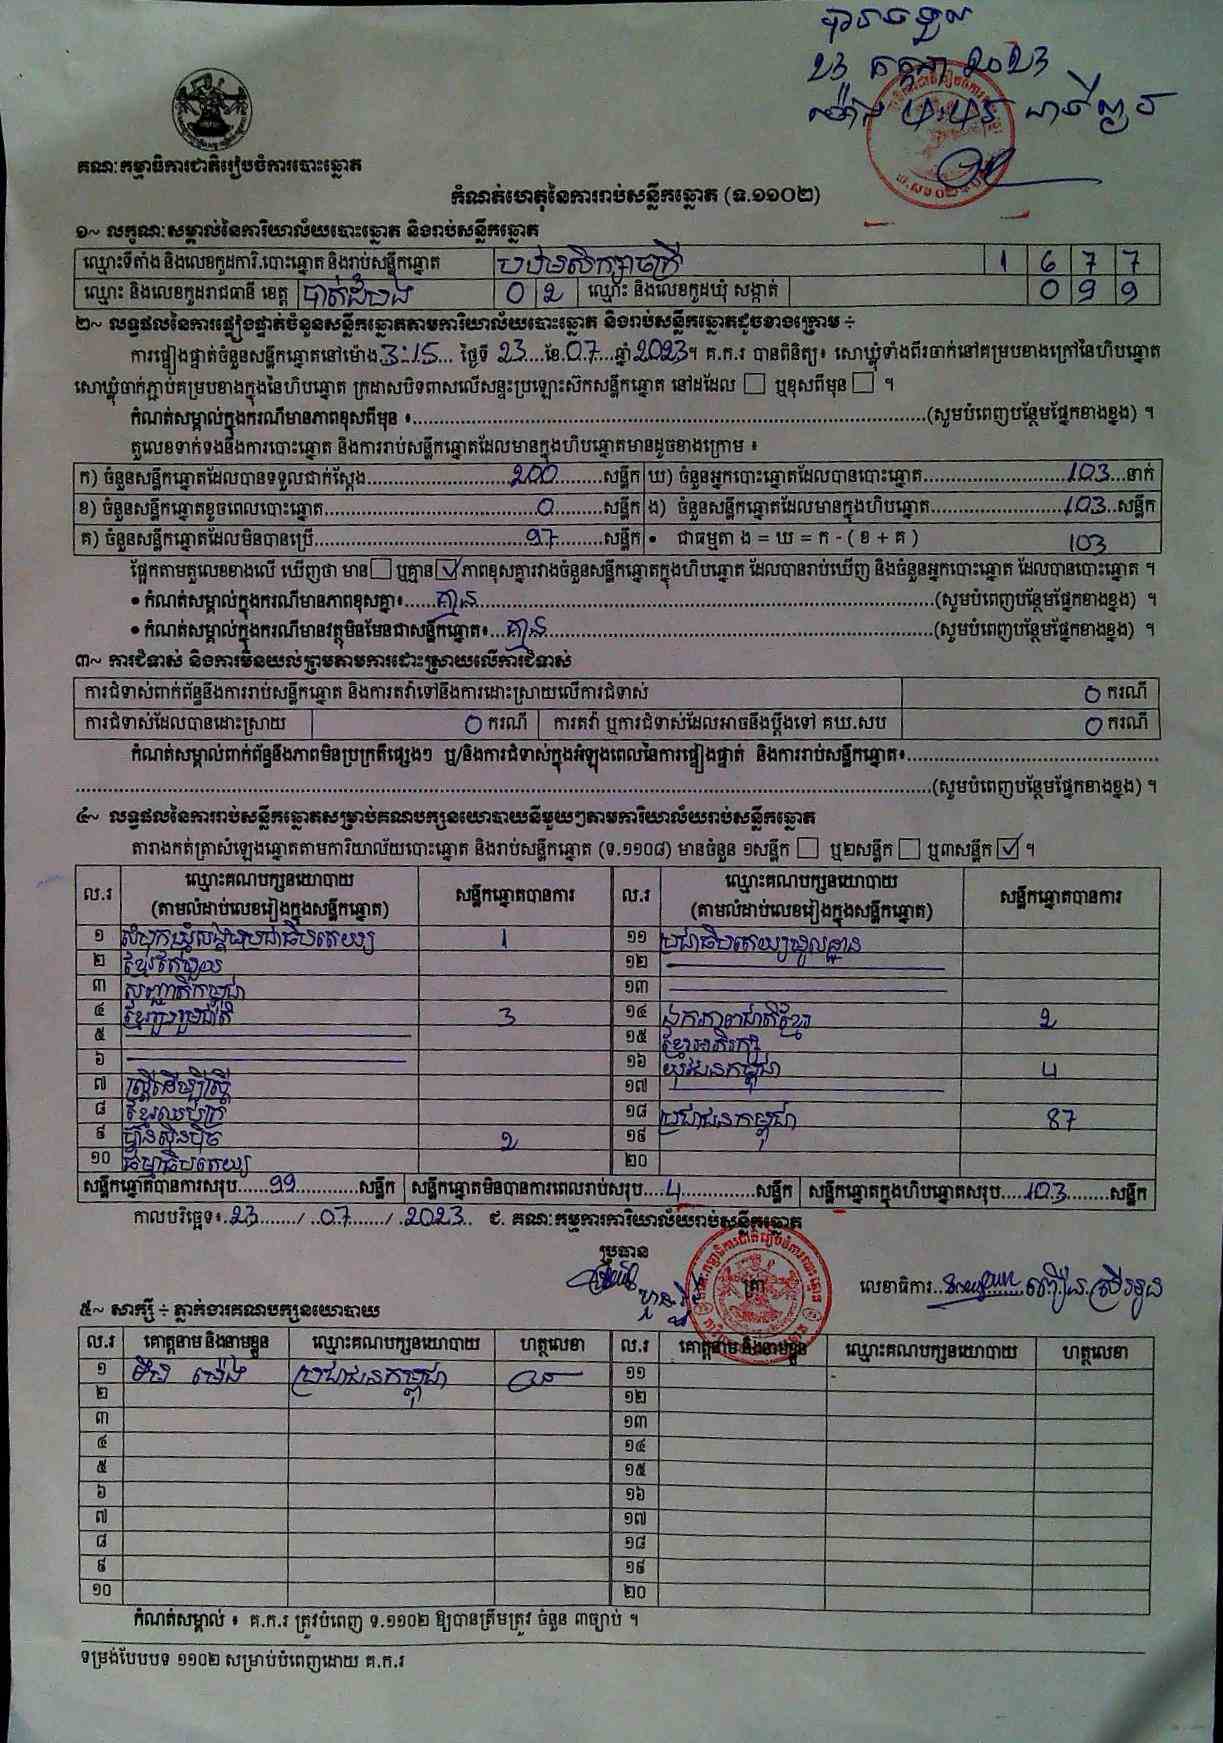 23 កក្កដា 2023
គណៈកម្មាធិការជាតិរៀបចំការបោះឆ្នោត
កំណត់ហេតុនៃការរាប់សន្លឹកឆ្នោត (ទ.១១០២)
១~ លក្ខណៈសម្គាល់នៃការិយាល័យបោះឆ្នោត និងរាប់សន្លឹកឆ្នោត
ឈ្មោះទីតាំង និងលេខកូដការិ.បោះឆ្នោត និងរាប់សន្លឹកឆ្នោត 1 6 7 7
ឈ្មោះ និងលេខកូដរាជធានី ខេត្ត បាត់ដំបង 0 2 ឈ្មោះ និងលេខកូដឃុំ សង្កាត់ 0 9 9
២~ លទ្ធផលនៃការផ្ទៀងផ្ទាត់ចំនួនសន្លឹកឆ្នោតតាមការិយាល័យបោះឆ្នោត និងរាប់សន្លឹកឆ្នោតដូចខាងក្រោម ÷
ការផ្ទៀងផ្ទាត់ចំនួនសន្លឹកឆ្នោតនៅម៉ោង 3:15 ថ្ងៃទី 23 ខែ 07 ឆ្នាំ 2023។ គ.ក.រ បានពិនិត្យ៖ សោឃ្លុំទាំងពីរចាក់នៅគម្របខាងក្រៅនៃហិបឆ្នោត
សោឃ្លុំចាក់ភ្ជាប់គម្របខាងក្នុងនៃហិបឆ្នោត ក្រដាសបិទពាសលើសន្ទះប្រឡោះស៊កសន្លឹកឆ្នោត នៅដដែល ☐ ឬខុសពីមុន ☐ ។
កំណត់សម្គាល់ក្នុងករណីមានភាពខុសពីមុន ៖ (សូមបំពេញបន្ថែមផ្នែកខាងខ្នង) ។
តួលេខទាក់ទងនឹងការបោះឆ្នោត និងការរាប់សន្លឹកឆ្នោតដែលមានក្នុងហិបឆ្នោតមានដូចខាងក្រោម ៖
ក) ចំនួនសន្លឹកឆ្នោតដែលបានទទួលជាក់ស្តែង 200 សន្លឹក ឃ) ចំនួនអ្នកបោះឆ្នោតដែលបានបោះឆ្នោត 103 នាក់
ខ) ចំនួនសន្លឹកឆ្នោតខូចពេលបោះឆ្នោត 0 សន្លឹក ង) ចំនួនសន្លឹកឆ្នោតដែលមានក្នុងហិបឆ្នោត 103 សន្លឹក
គ) ចំនួនសន្លឹកឆ្នោតដែលមិនបានប្រើ 97 សន្លឹក • ជាធម្មតា ង = ឃ = ក - ( ខ + គ ) 103
ផ្អែកតាមតួលេខខាងលើ ឃើញថា មាន ☐ ឬគ្មាន ☑ ភាពខុសគ្នារវាងចំនួនសន្លឹកឆ្នោតក្នុងហិបឆ្នោត ដែលបានរាប់ឃើញ និងចំនួនអ្នកបោះឆ្នោត ដែលបានបោះឆ្នោត ។
• កំណត់សម្គាល់ក្នុងករណីមានភាពខុសគ្នា៖ គ្មាន (សូមបំពេញបន្ថែមផ្នែកខាងខ្នង) ។
• កំណត់សម្គាល់ក្នុងករណីមានវត្ថុមិនមែនជាសន្លឹកឆ្នោត៖ គ្មាន (សូមបំពេញបន្ថែមផ្នែកខាងខ្នង) ។
៣~ ការជំទាស់ និងការមិនយល់ព្រមតាមការដោះស្រាយលើការជំទាស់
ការជំទាស់ពាក់ព័ន្ធនឹងការរាប់សន្លឹកឆ្នោត និងការតវ៉ាទៅនឹងការដោះស្រាយលើការជំទាស់ 0 ករណី
ការជំទាស់ដែលបានដោះស្រាយ 0 ករណី ការតវ៉ា ឬការជំទាស់ដែលអាចនឹងប្តឹងទៅ គឃ.សប 0 ករណី
កំណត់សម្គាល់ពាក់ព័ន្ធនឹងភាពមិនប្រក្រតីផ្សេងៗ ឬ/និងការជំទាស់ក្នុងអំឡុងពេលនៃការផ្ទៀងផ្ទាត់ និងការរាប់សន្លឹកឆ្នោត៖
(សូមបំពេញបន្ថែមផ្នែកខាងខ្នង) ។
៤~ លទ្ធផលនៃការរាប់សន្លឹកឆ្នោតសម្រាប់គណបក្សនយោបាយនីមួយៗតាមការិយាល័យរាប់សន្លឹកឆ្នោត
តារាងកត់ត្រាសំឡេងឆ្នោតតាមការិយាល័យបោះឆ្នោត និងរាប់សន្លឹកឆ្នោត (ទ.១១០៨) មានចំនួន ១សន្លឹក ☐ ឬ២សន្លឹក ☐ ឬ៣សន្លឹក ☑ ។
ល.រ ឈ្មោះគណបក្សនយោបាយ (តាមលំដាប់លេខរៀងក្នុងសន្លឹកឆ្នោត) សន្លឹកឆ្នោតបានការ ល.រ ឈ្មោះគណបក្សនយោបាយ (តាមលំដាប់លេខរៀងក្នុងសន្លឹកឆ្នោត) សន្លឹកឆ្នោតបានការ
១ សំបុកឃ្មុំសង្គមប្រជាធិបតេយ្យ 1 ១១ ប្រជាធិបតេយ្យមូលដ្ឋាន
២ ខ្មែរតែមួយ ១២
៣ សញ្ជាតិកម្ពុជា ១៣
៤ ខ្មែររួបរួមជាតិ 3 ១៤ ឯកភាពជាតិខ្មែរ 2
៥ ១៥ ខ្មែរអភិរក្ស
៦ ១៦ យុវជនកម្ពុជា 4
៧ ស្ត្រីដើម្បីស្ត្រី ១៧
៨ ខ្មែរឈប់ក្រ ១៨ ប្រជាជនកម្ពុជា 87
៩ ហ្វ៊ុនស៊ិនប៉ិច 2 ១៩
១០ ធម្មាធិបតេយ្យ ២០
សន្លឹកឆ្នោតបានការសរុប 99 សន្លឹក សន្លឹកឆ្នោតមិនបានការពេលរាប់សរុប 4 សន្លឹក សន្លឹកឆ្នោតក្នុងហិបឆ្នោតសរុប 103 សន្លឹក
កាលបរិច្ឆេទ៖ 23 / 07 / 2023 ជ. គណៈកម្មការការិយាល័យរាប់សន្លឹកឆ្នោត
ប្រធាន
ត្រា
លេខាធិការ
៥~ សាក្សី ÷ ភ្នាក់ងារគណបក្សនយោបាយ
ល.រ គោត្តនាម និងនាមខ្លួន ឈ្មោះគណបក្សនយោបាយ ហត្ថលេខា ល.រ គោត្តនាម និងនាមខ្លួន ឈ្មោះគណបក្សនយោបាយ ហត្ថលេខា
១ ប្រជាជនកម្ពុជា ១១
២ ១២
៣ ១៣
៤ ១៤
៥ ១៥
៦ ១៦
៧ ១៧
៨ ១៨
៩ ១៩
១០ ២០
កំណត់សម្គាល់ ៖ គ.ក.រ ត្រូវបំពេញ ទ.១១០២ ឱ្យបានត្រឹមត្រូវ ចំនួន ៣ច្បាប់ ។
ទម្រង់បែបបទ ១១០២ សម្រាប់បំពេញដោយ គ.ក.រ